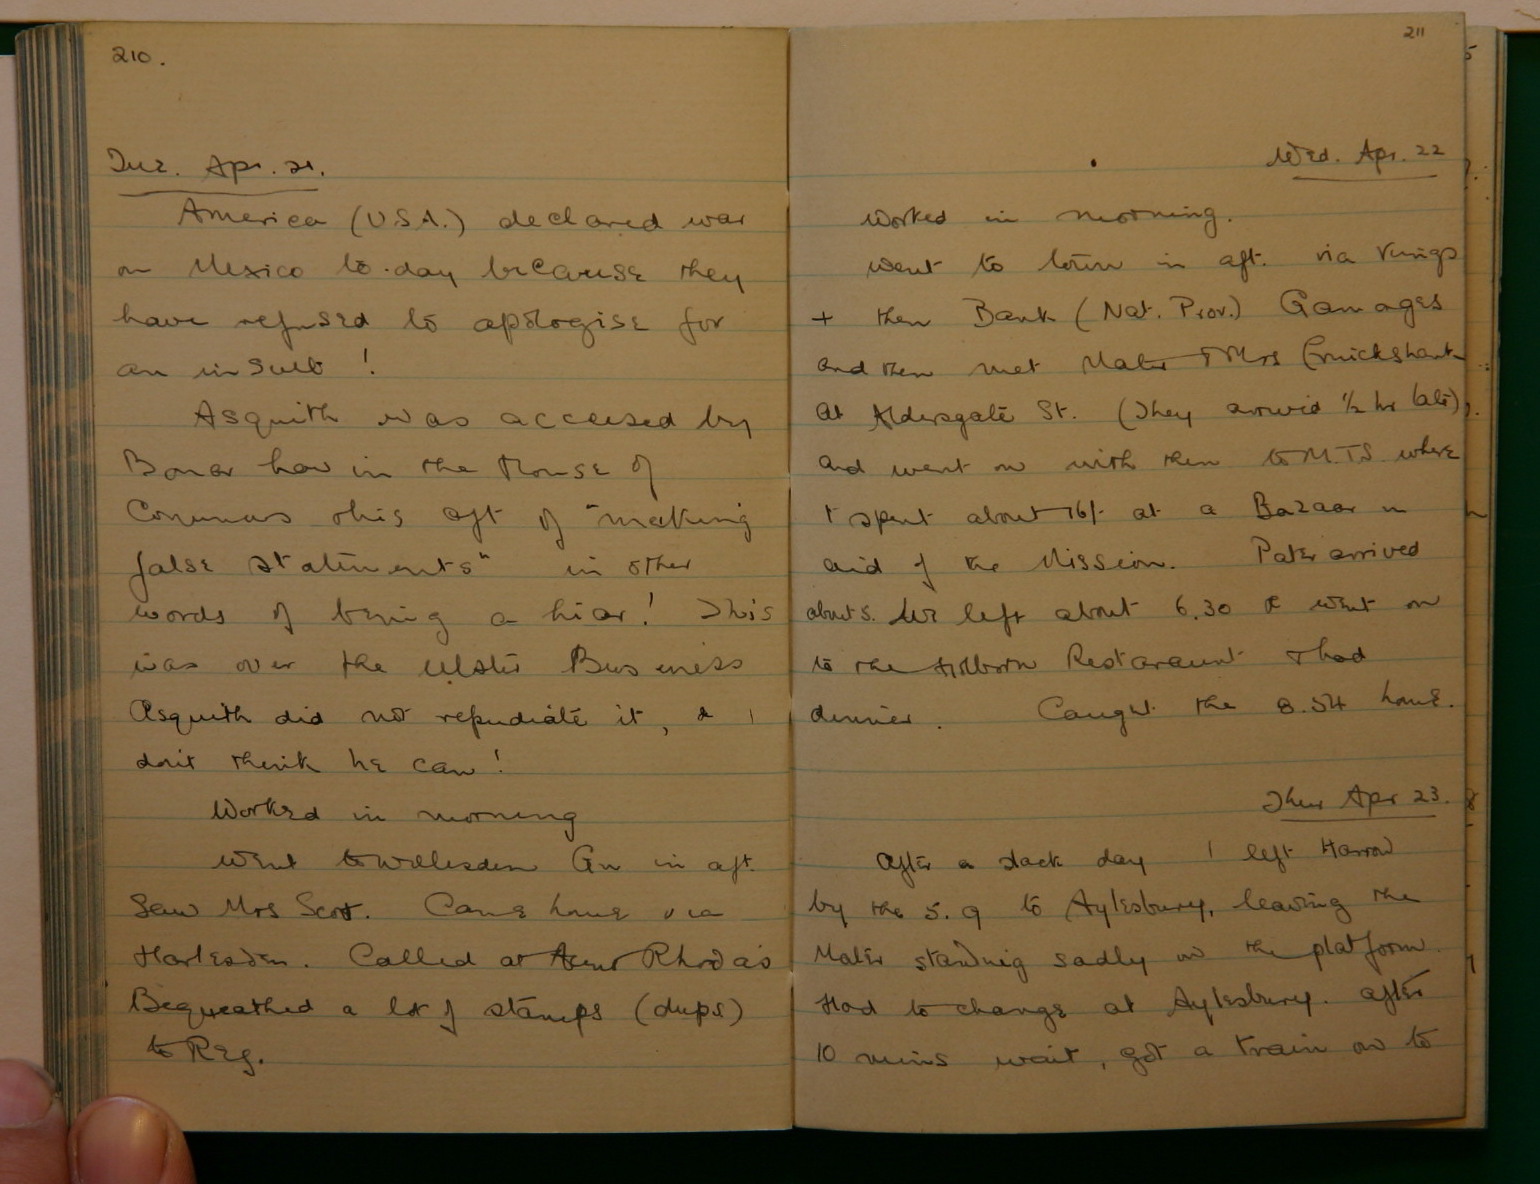 210.
Tue. Apr. 21.
America (USA.) declared war
on Mexico to-day because they
have refused to apologise for
an insult !
Asquith was accused by
Bonar Law in the House of
Commons this aft of "making
false statements" in other
words of being a liar! This
was over the Ulster Business
Asquith did not repudiate it, & I
don't think he can!
Worked in morning
Went to Willesden Gn in aft.
Saw Mrs Scott. Came home via
Harlesden. Called at Aunt Rhoda's
Bequeathed a lot of stamps (dups)
to Reg.
211
Wed. Apr. 22
Worked in morning.
Went to town in aft. via Kings
+ then Bank (Nat. Prov.) Gamages
and then met Mater & Mrs Cruickshank
at Aldersgate St. (They arrived ½ hr late).
and went on with them to M.T.S where
I spent about 16/- at a Bazaar in
aid of the Mission. Pater arrived
about 5. We left about 6.30 & went on
to the Holborn Restaraunt & had
dinner. Caught the 8.54 home.
Thur Apr 23.
After a slack day I left Harrow
by the 5.9 to Aylesbury, leaving the
Mater standing sadly on the platform.
Had to change at Aylesbury. After
10 mins wait, got a train on to